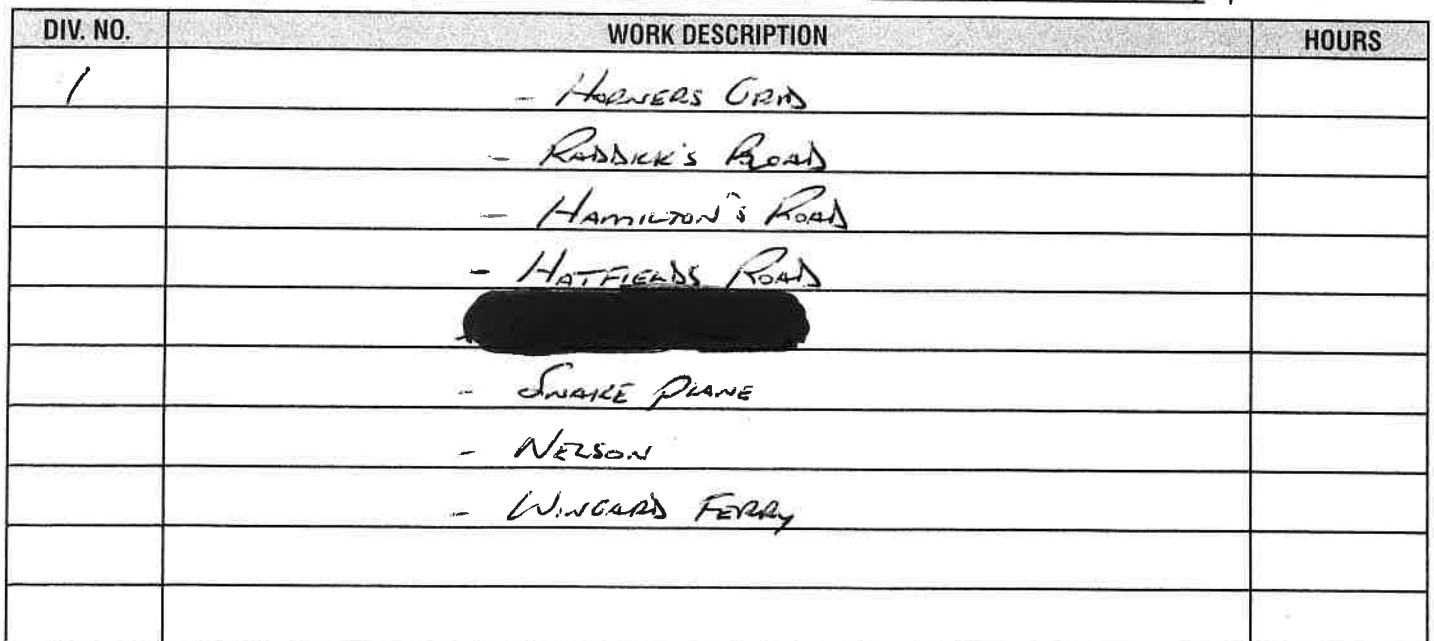 DIV. NO. WORK DESCRIPTION HOURS
1 - HORNERS GRID
- RADDICK'S ROAD
- HAMILTON'S ROAD
- HATFIELDS ROAD
- SNAKE PLANE
- NELSON
- WINGARD FERRY